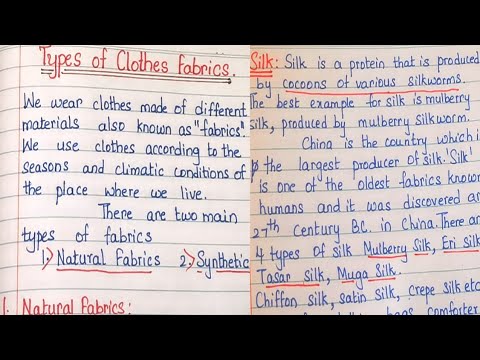 Types of Clothes Fabrics.
We wear clothes made of different
materials also known as "fabrics"
We use clothes according to the
seasons and climatic conditions of
the place where we live.
There are two main
types of fabrics
1) Natural Fabrics 2) Synthetic
1. Natural Fabrics:
Silk: Silk is a protein that is produced
by cocoons of various silkworms.
The best example for silk is mulberry
silk, produced by mulberry silkworm.
China is the country which i
the largest producer of silk. 'Silk'
is one of the oldest fabrics known
humans and it was discovered ar
27th Century BC. in China. There are
4 types of silk Mulberry Silk, Eri silk
Tasar silk, Muga Silk.
Chiffon silk, satin silk, crepe silk etc
bags, comforter